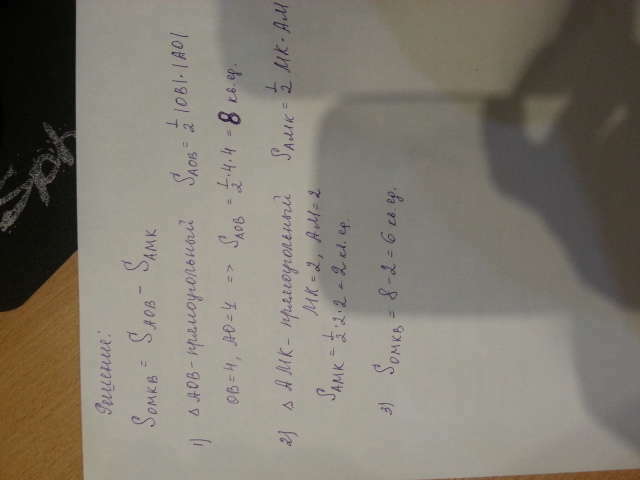 Решение:
S OMKB = S AOB - S AMK
1) △ AOB - прямоугольный S AOB = 1/2 |OB|·|AO|
OB=4, AO=4 => S AOB = 1/2·4·4 = 8 кв.ед.
2) △ AMK - прямоугольный S AMK = 1/2 MK·AM
MK=2, AM=2
S AMK = 1/2·2·2 = 2 кв.ед.
3) S OMKB = 8-2=6 кв ед.